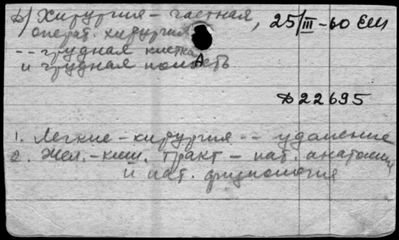 Б) Хирургия - частная, 25/III-60 Ем
операт. хирургия
-- грудная клетка
А
и грудная полость
Д22695
1. Легкие - хирургия -- удаление
2. Жел.-киш. тракт - пат. анатомия
и пат. физиология